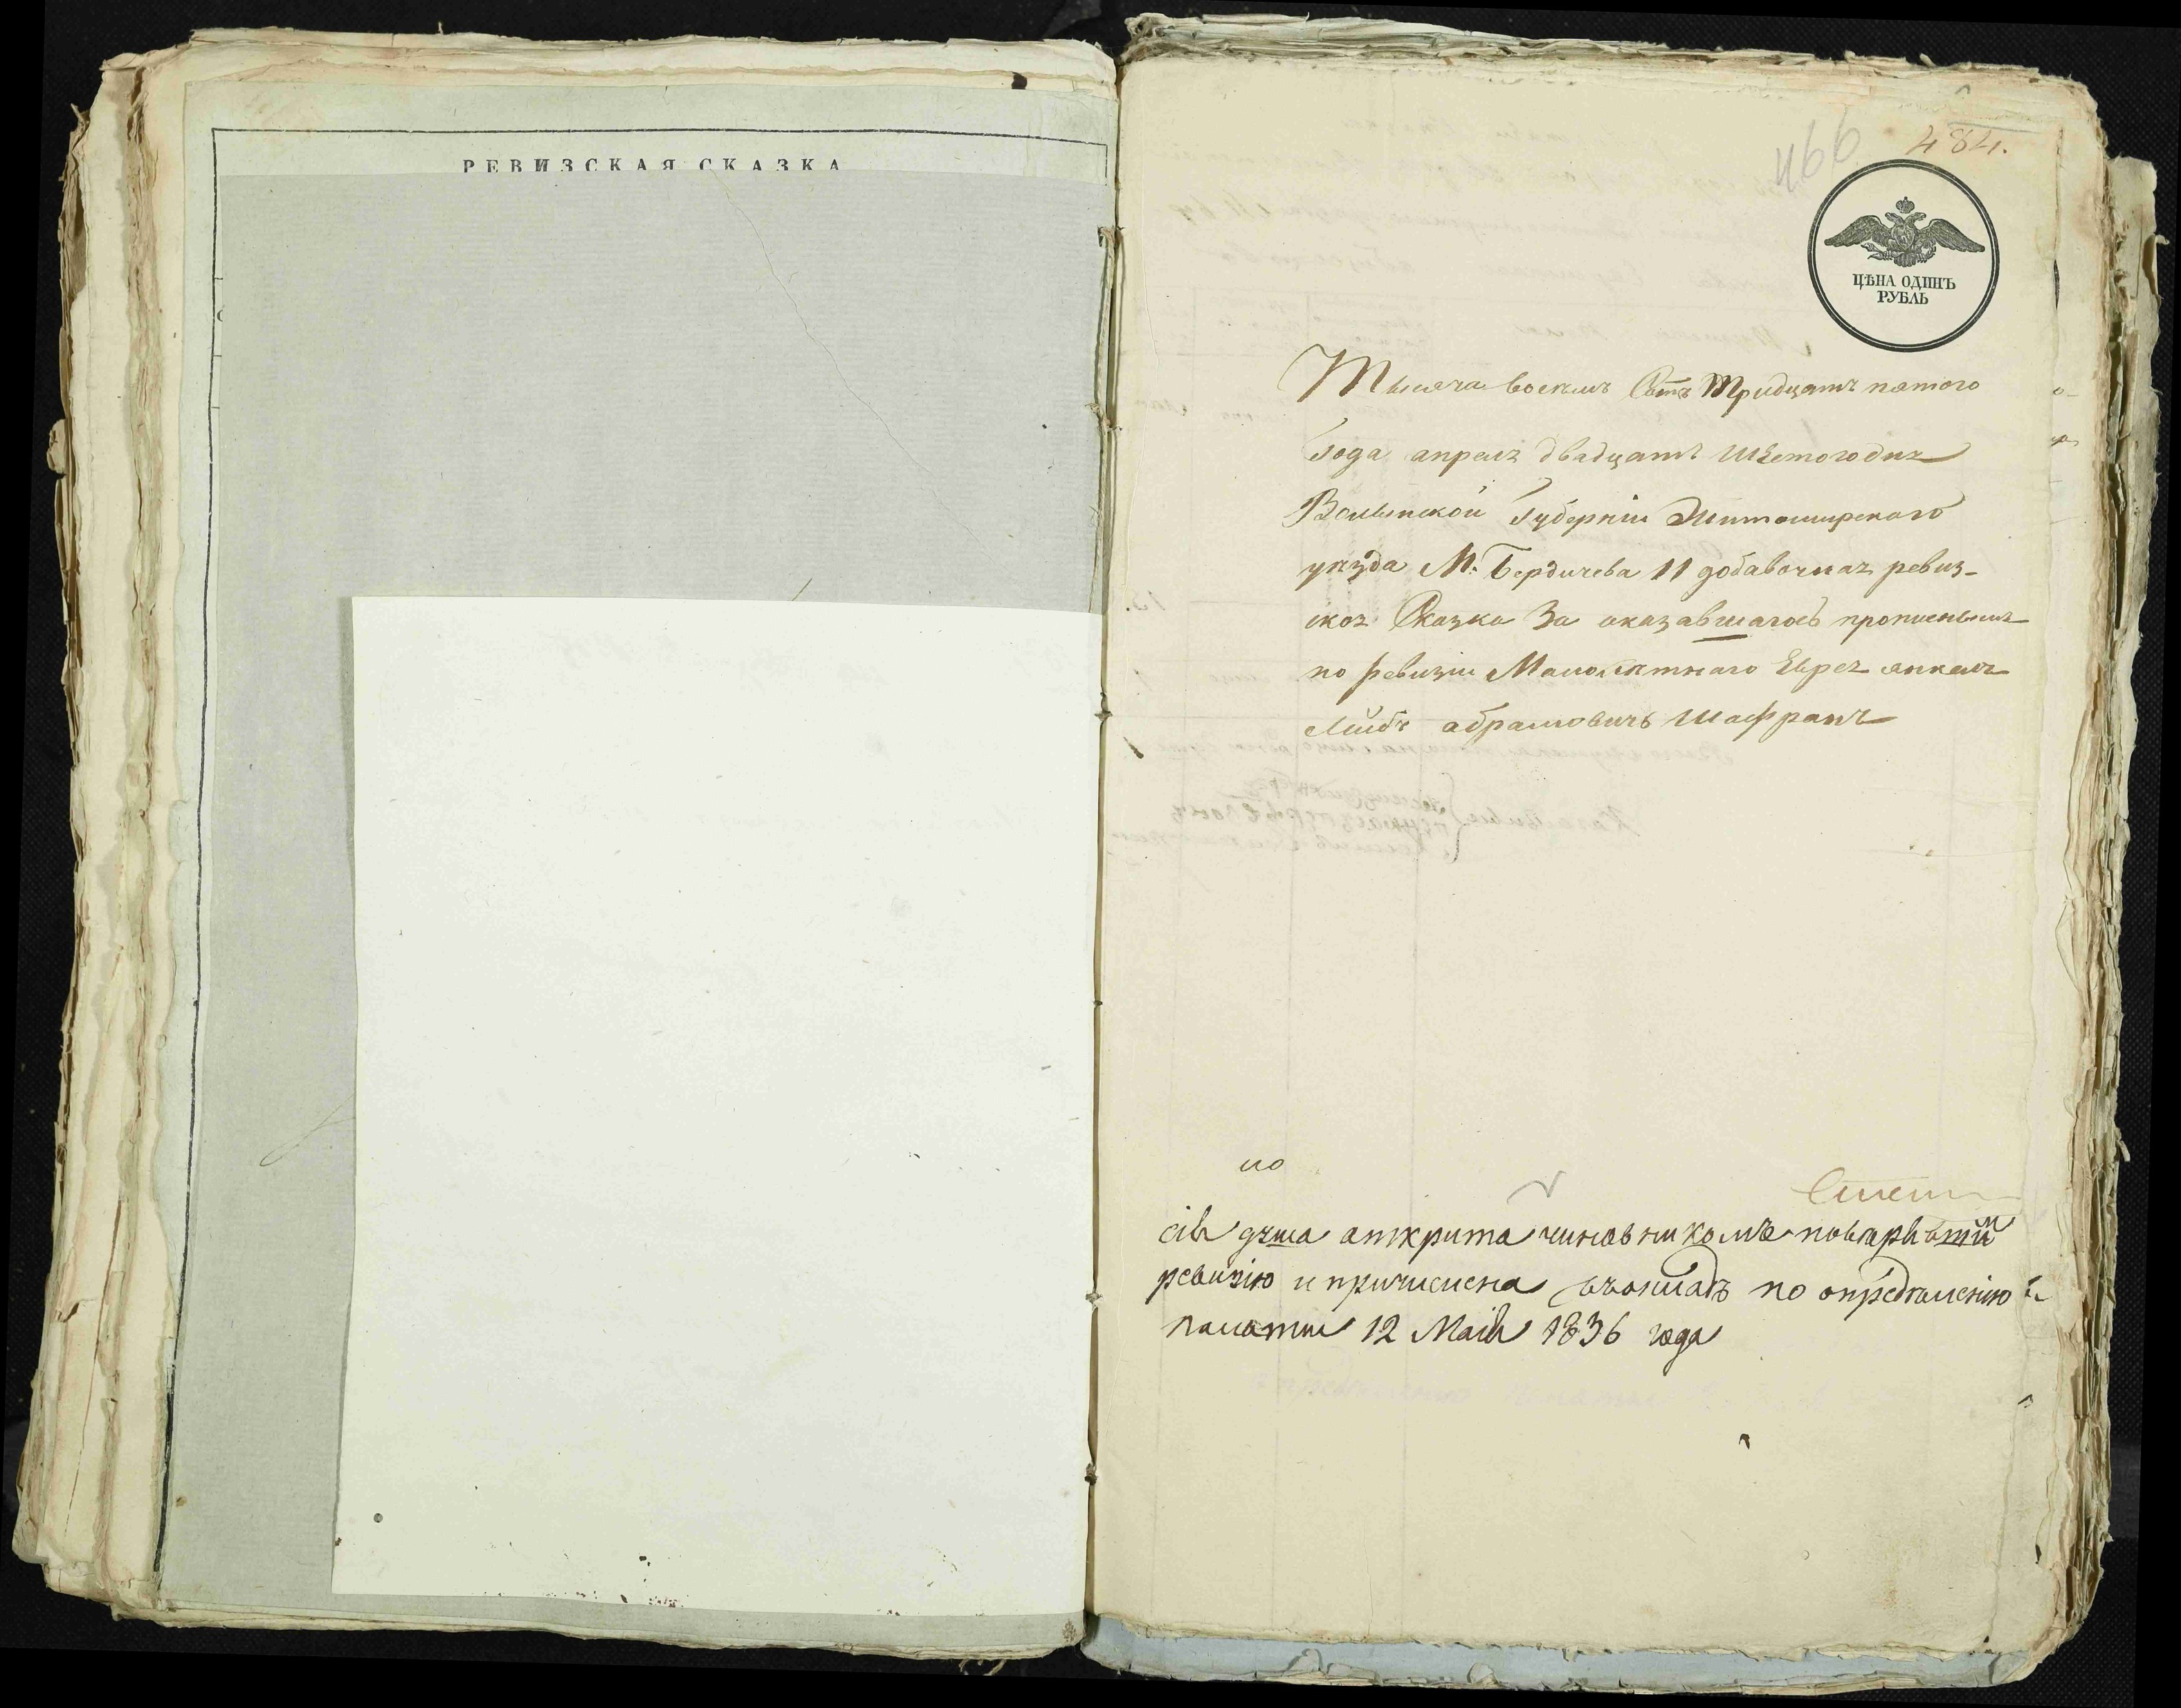 РЕВИЗСКАЯ СКАЗКА
466
484.
ЦѢНА ОДИНЪ
РУБЛЬ
Тысяча восемъ Сотъ Тридцать пятого
Года апреля двадцать шестого дня
Волынской Губерніи Житомирского
уезда М. Бердичева 11 добавочная ревиз-
ская Сказка За оказавшагось прописнымъ
по ревизіи Малолѣтнаго Еврея янкеля
Лейбъ абрамовичъ Шафранъ
по
сія душа открита чиновникомъ поверявшим
ревизію и причислена въ окладъ по определенію
палати 12 Маія 1836 года